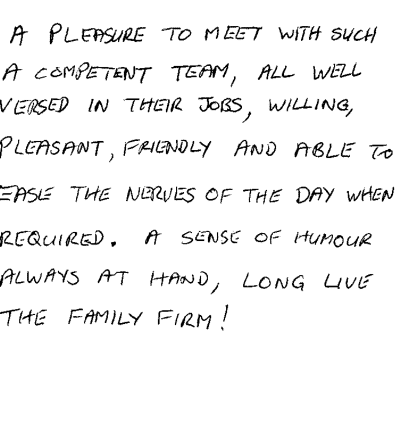 A PLEASURE TO MEET WITH SUCH
A COMPETENT TEAM, ALL WELL
VERSED IN THEIR JOBS, WILLING,
PLEASANT, FRIENDLY AND ABLE TO
EASE THE NERVES OF THE DAY WHEN
REQUIRED. A SENSE OF HUMOUR
ALWAYS AT HAND, LONG LIVE
THE FAMILY FIRM!